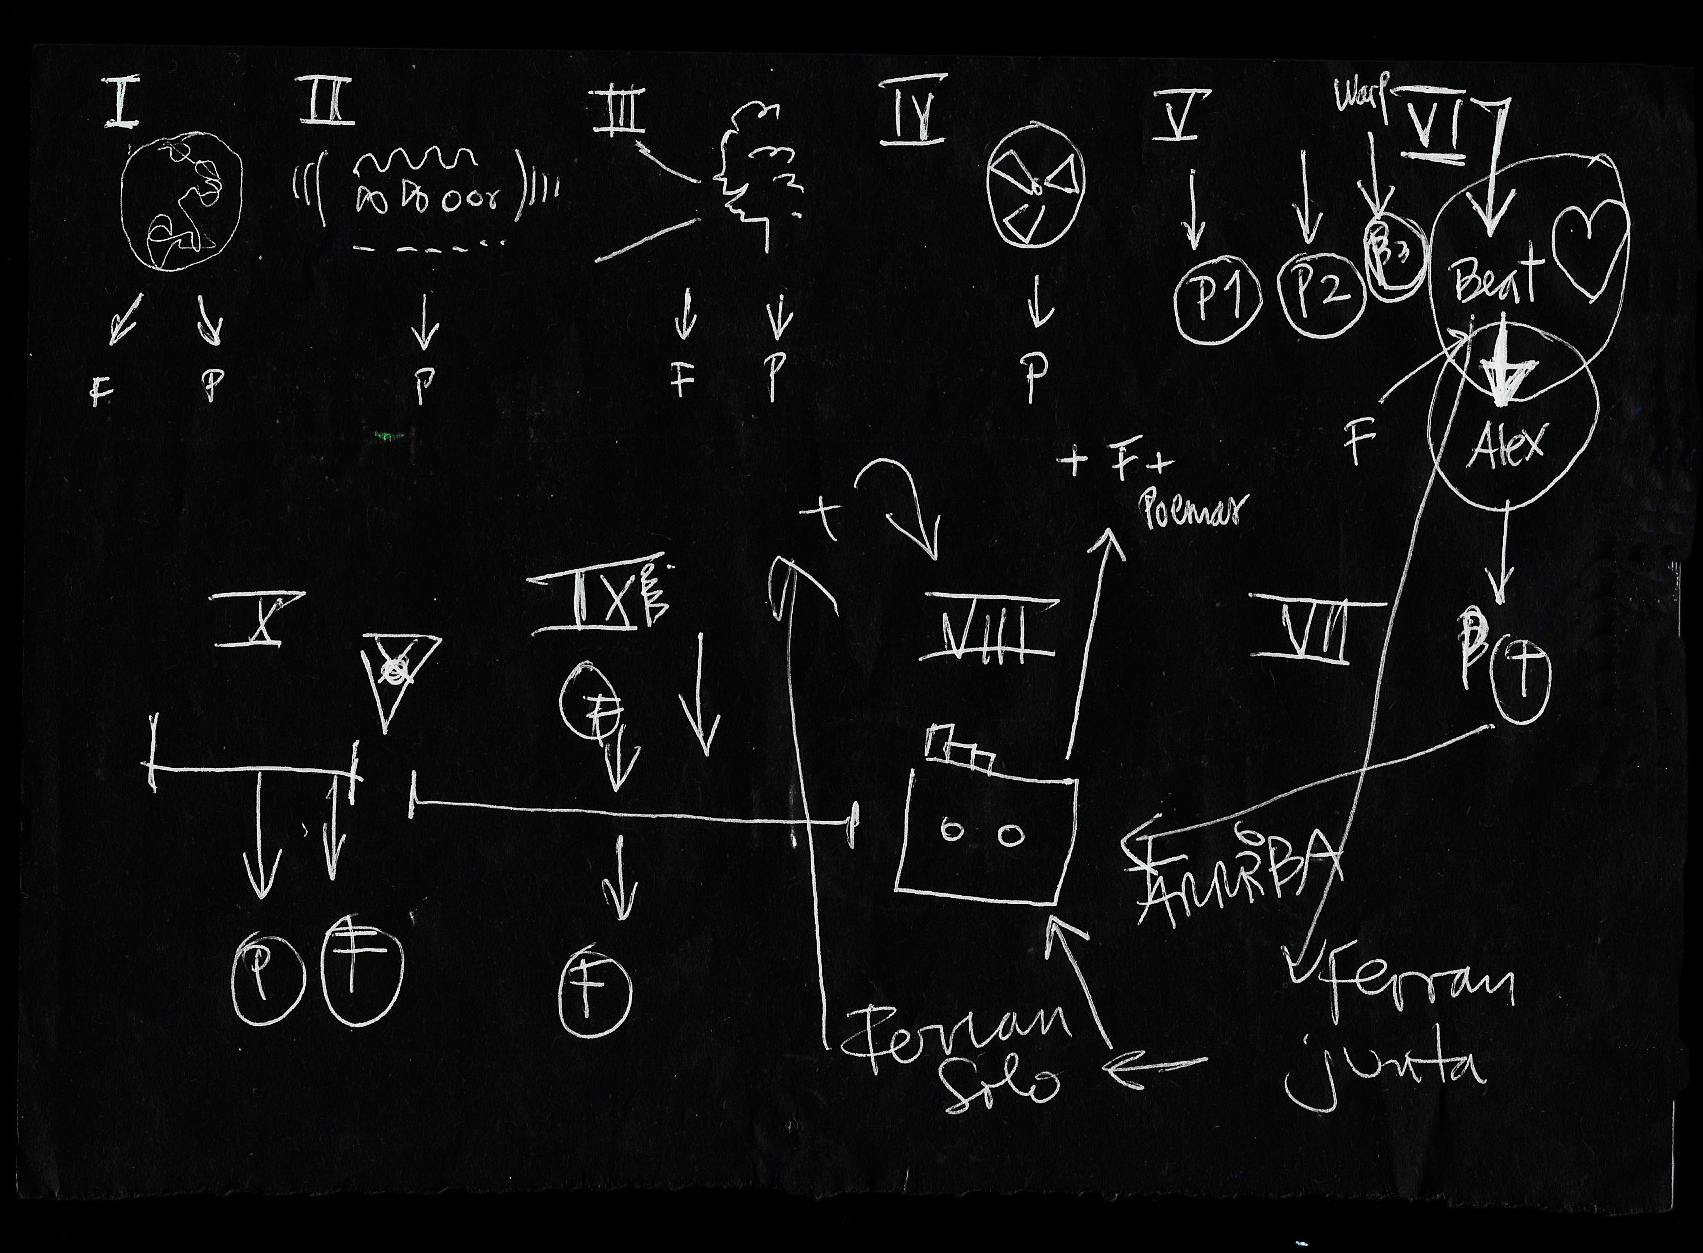 I II III IV V Warp VI
F P
P
F P
P
P1 P2 P3
Beat
F
Alex
+ F +
Poemas
+
X IX VIII VII
F
P T
ARRIBA
P F F
Ferran
Solo
Ferran
junta